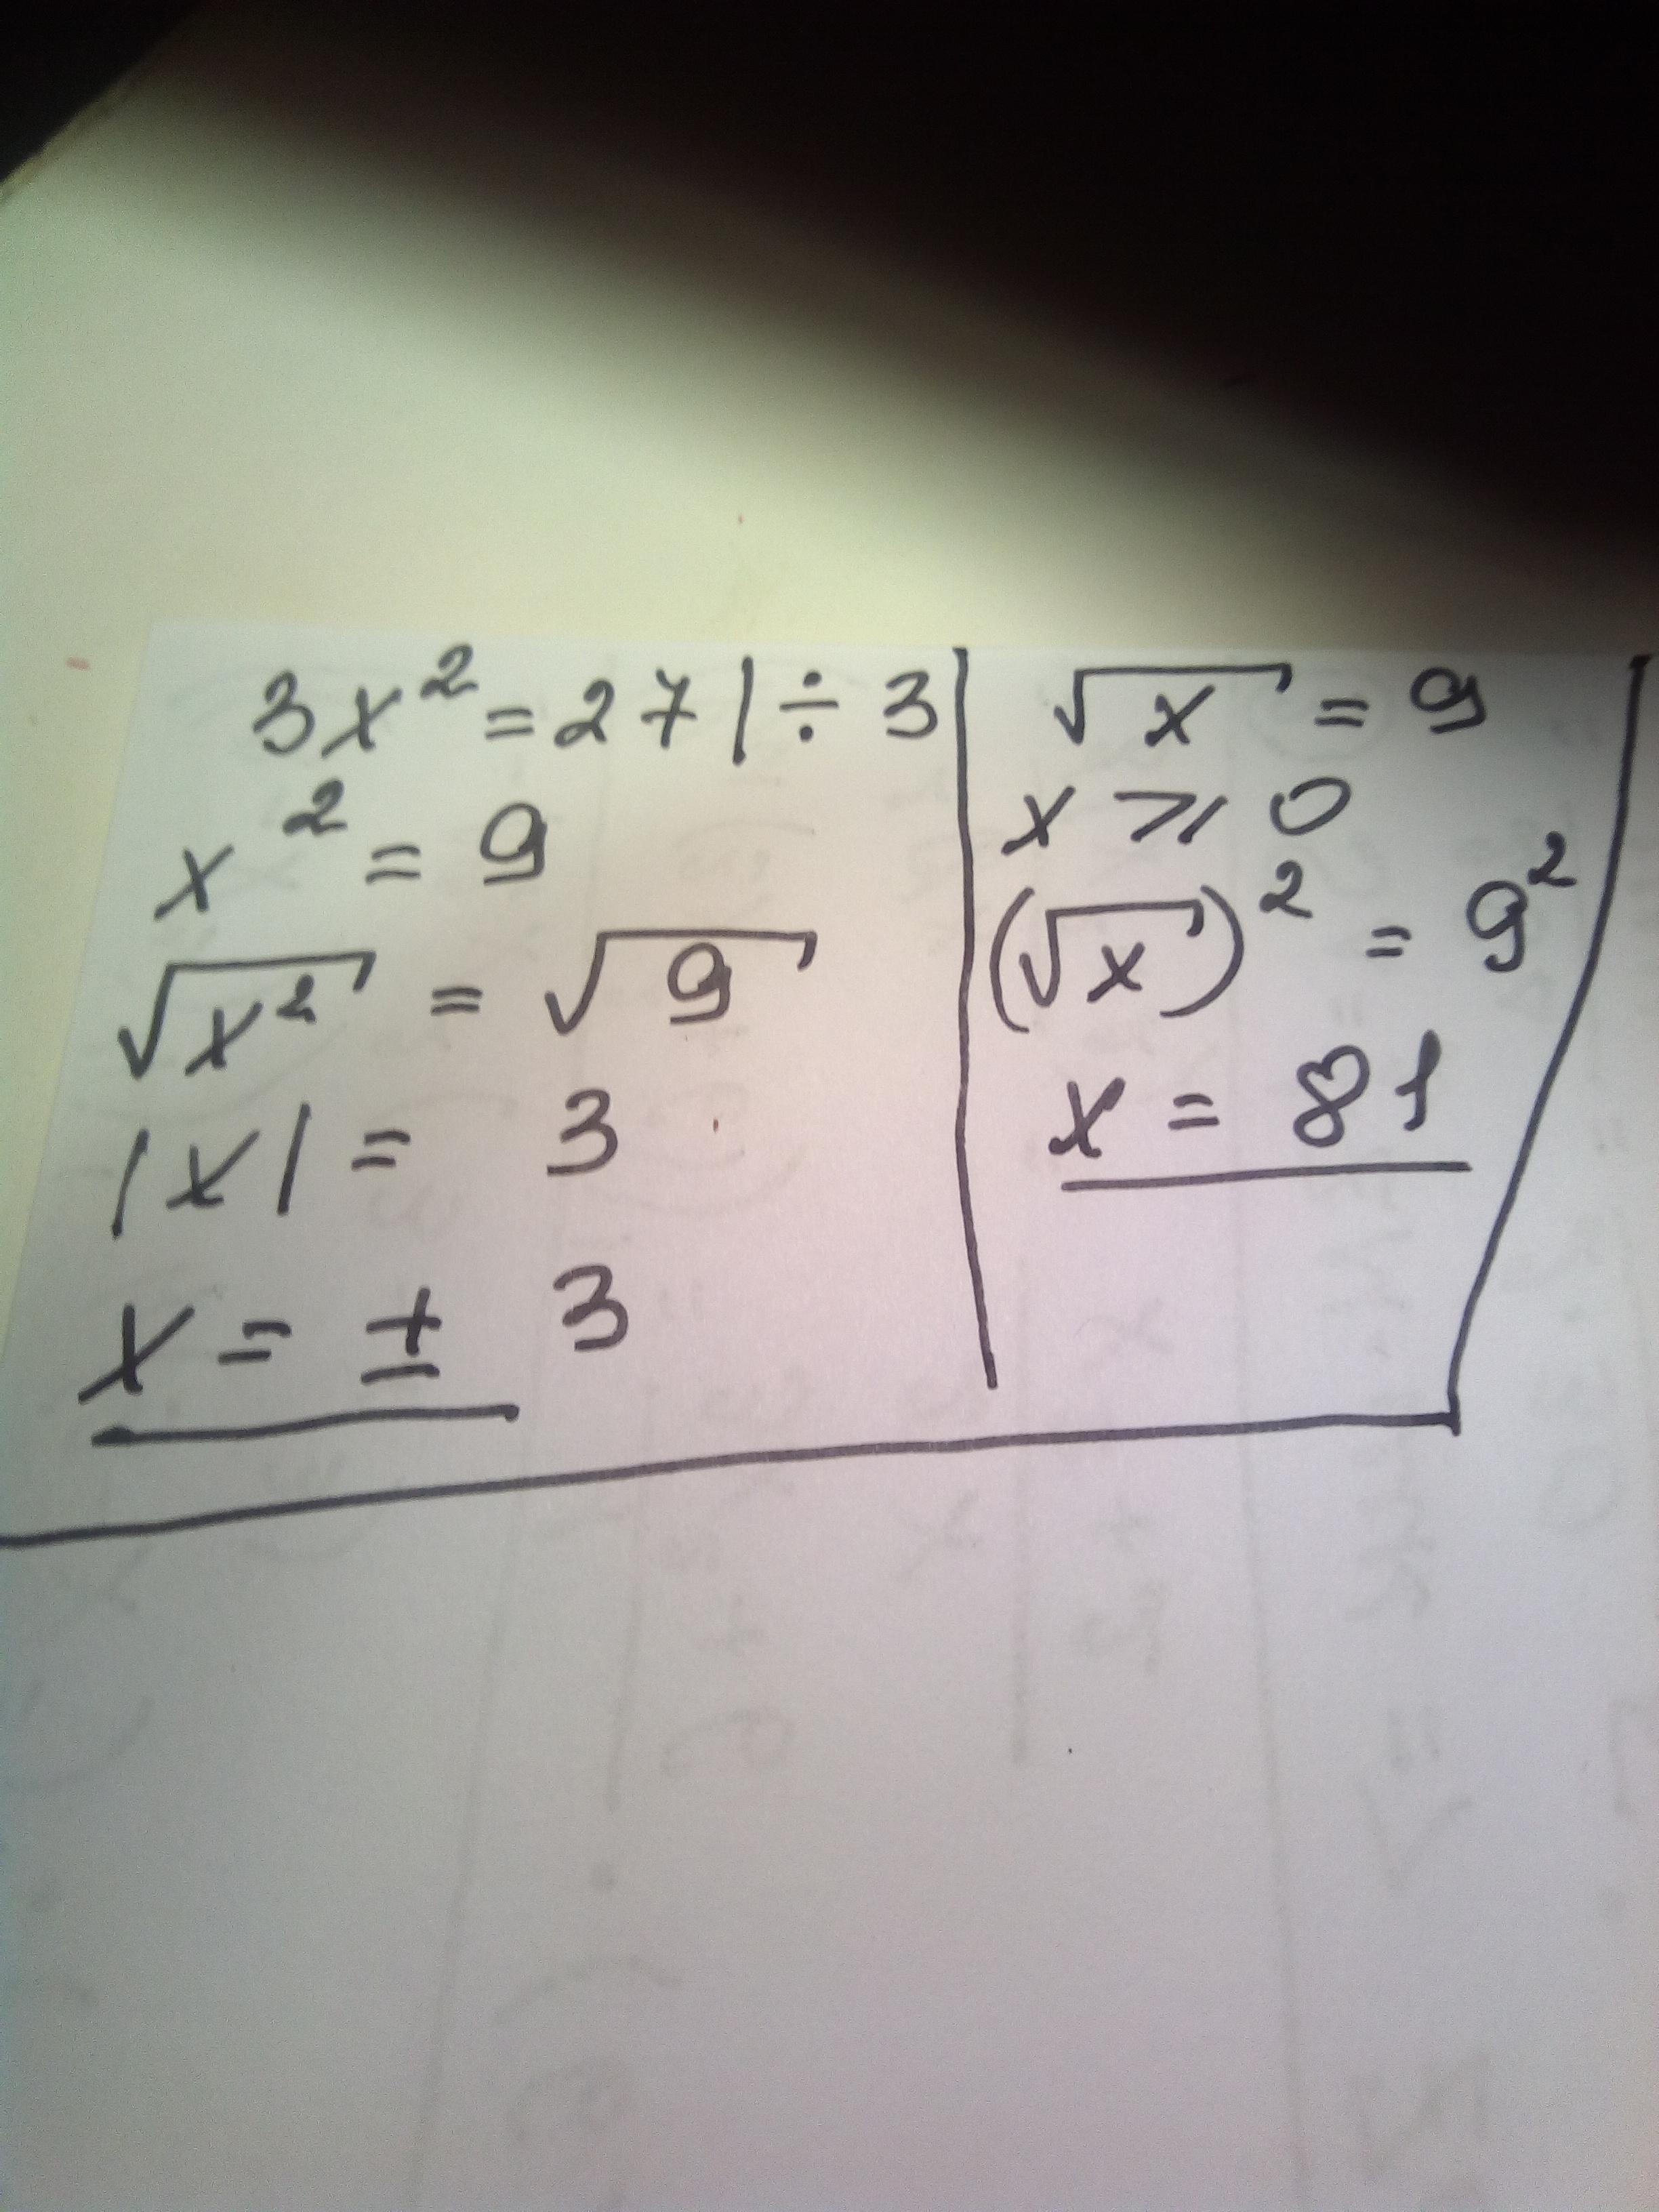 3x² = 27 | ÷ 3
x² = 9
√x² = √9
|x| = 3
x = ± 3
√x = 9
x ⩾ 0
(√x)² = 9²
x = 81